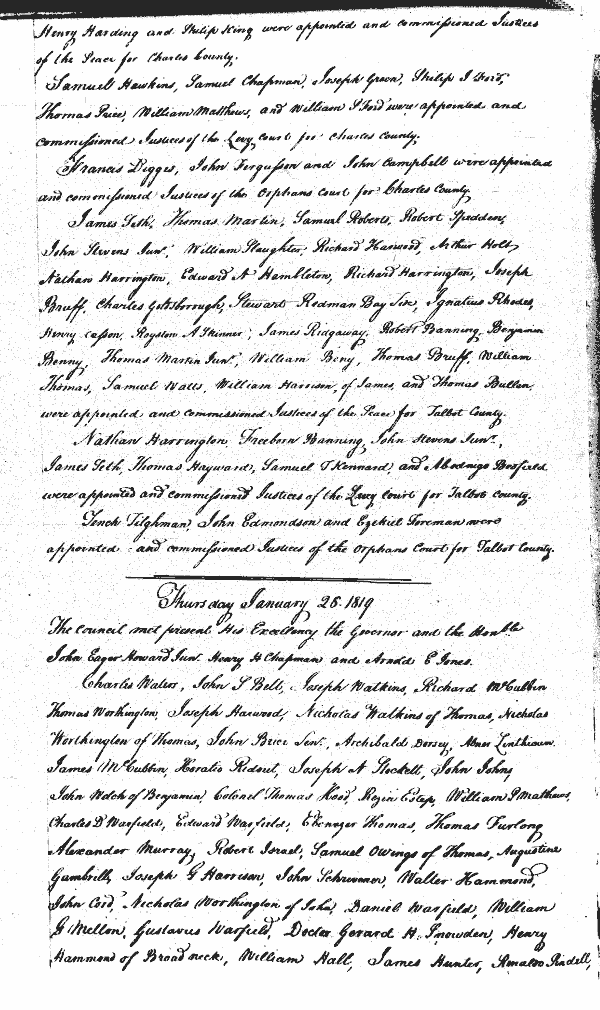 Henry Harding and Philip King were appointed and commissioned Justices
of the Peace for Charles County.
Samuel Hawkins, Samuel Chapman, Joseph Green, Philip I Ford,
Thomas Price, William Matthews, and William S Ford were appointed and
commissioned Justices of the Levy Court for Charles County.
Francis Digges, John Fergusson and John Campbell were appointed
and commissioned Justices of the Orphans Court for Charles County
James Seth, Thomas Martin, Samuel Roberts, Robert Spedden,
John Stevens Junr, William Slaughter, Richard Harwood, Arthur Holt,
Nathan Harrington, Edward N Hambleton, Richard Harrington, Joseph
Bruff, Charles Goldsborough, Stewart Redman, Ignatius Rhodes,
Henry Casson, Royston A Skinner, James Ridgaway, Robert Banning, Benjamin
Benny, Thomas Martin Junr, William Beny, Thomas Bruff, William
Thomas, Samuel Watts, William Harrison, of James, and Thomas Bullen,
were appointed and commissioned Justices of the Peace for Talbot County.
Nathan Harrington, Freeborn Banning, John Stevens Junr,
James Seth, Thomas Hayward, Samuel T Kennard, and Abednigo
were appointed and commissioned Justices of the Levy Court for Talbot County.
Tench Tilghman, John Edmondson and Ezekiel Foreman were
appointed and commissioned Justices of the Orphans Court for Talbot County.
Thursday January 28. 1819
The Council met present His Excellency the Governor and the Honble
John Eager Howard Junr Henry H Chapman and Arnold E Jones.
Charles Waters, John S Belt, Joseph Watkins, Richard McCubbin
Thomas Worthington, Joseph Harwood, Nicholas Watkins of Thomas, Nicholas
Worthington of Thomas, John Brice Senr, Archibald Dorsey, Abner Linthicum
James McCubbin, Horatio Ridout, Joseph N Stockett, John Johns
John Welch of Benjamin, Colonel Thomas Hood, Rezin Estep, William P Mathews,
Charles D Warfield, Edward Warfield, Ebenezer Thomas, Thomas Furlong
Alexander Murray, Robert Israel, Samuel Owings of Thomas, Augustine
Gambrill, Joseph G Harrison, John Schrivener, Walter Hammond,
John Cord, Nicholas Worthington of John, Daniel Warfield, William
G Mellon, Gustavus Warfield, Docter Gerard H. Snowden, Henry
Hammond of Broad neck, William Hall, James Hunter, Rinaldo Pindell,